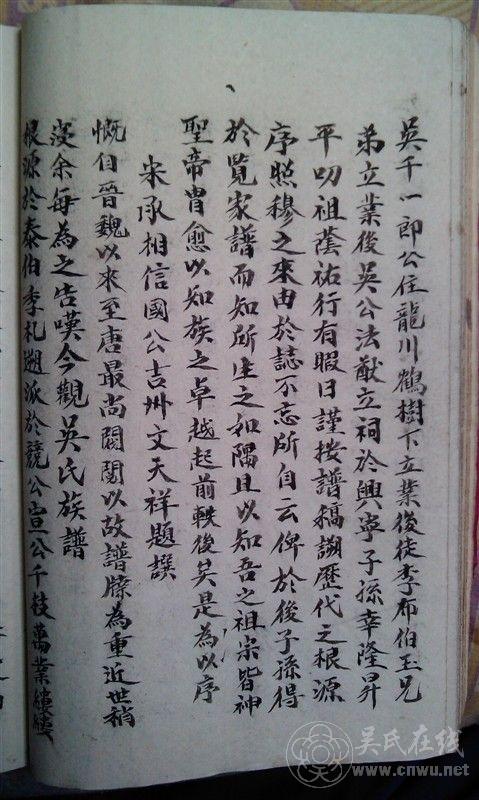 吳千一郎公住龍川鶴樹下立業後徒李布伯玉兄
弟立業後吳公法猷立祠於興寧子孫幸隆昇
平叨祖蔭祐行有暇日謹按譜稿溯歷代之根源
序照穆之來由於誌不忘所自云俾於後子孫得
於覧家譜而知所生之和隅且以知吾之祖宗皆神
聖帝胄愈以知族之卓越起前軼後矣是為以序
宋承相信國公吉州文天祥題譔
慨自晉魏以來至唐最尚閥閱以故譜牒為重近世稍
寖余每為之告嘆今觀吳氏族譜
根源於泰伯季札遡派於兢公宣公千枝萬業縷縷
吴氏在线
www.cnwu.net